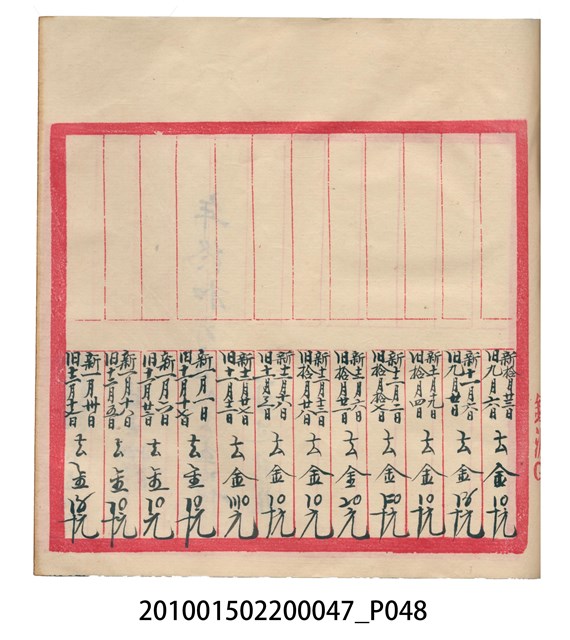 新拾月廿日 旧九月六日 去金10元
新十一月六日 旧九月廿日 去金
新十一月九日 旧拾月四日 去金10元
新十二月三日 旧拾月十七日 去金
新十二月六日 旧拾月廿一日 去金20元
新十二月十三日 旧拾月廿八日 去金10元
新十二月十八日 旧十一月三日 去金10元
新十二月廿七日 旧十一月十二日 去金
新一月一日 旧十一月十七日 去金10元
旧十一月廿日 去金10元
新一月十八日 旧十二月五日 去金10元
新一月卅日 去金
201001502200047_P048